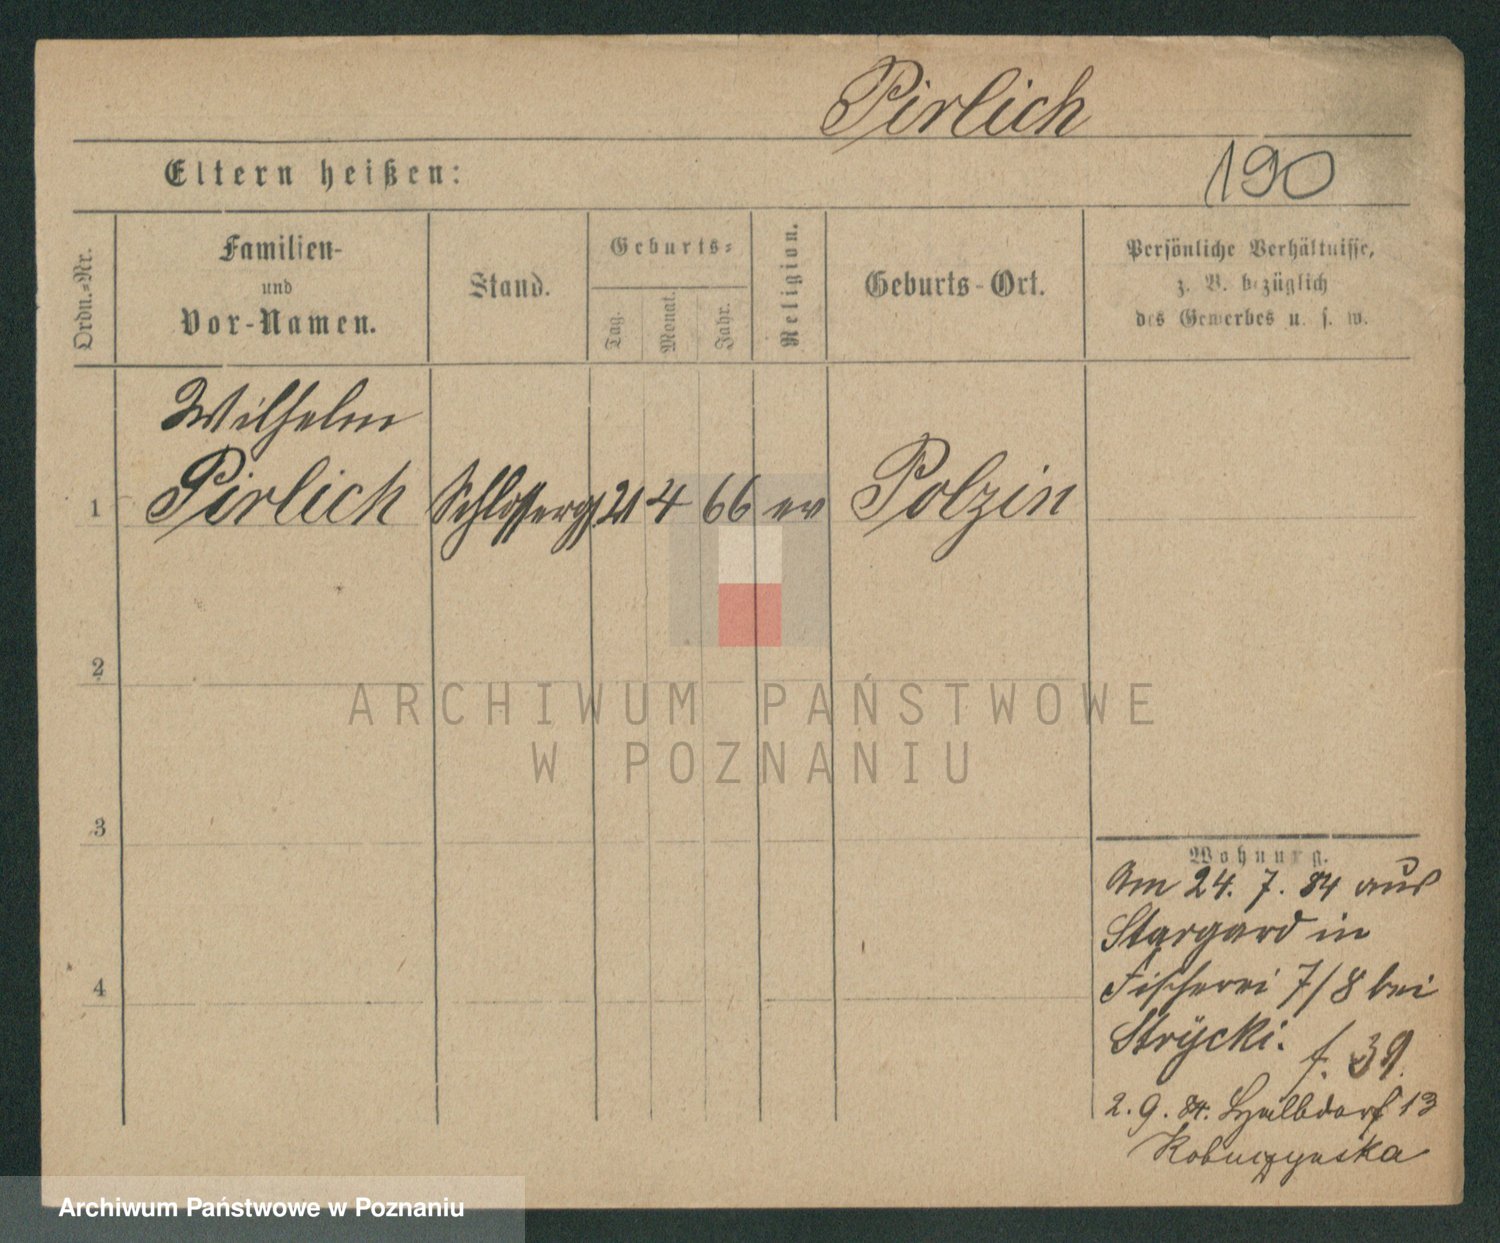 Pirlich
Eltern heißen:
190
Ordn.-Nr.
Familien-
und
Vor-Namen.
Stand.
Geburts-
Tag.
Monat.
Jahr.
Religion.
Geburts-Ort.
Persönliche Verhältnisse,
z. B. bezüglich
des Gewerbes u. s. w.
Wilhelm
1 Pirlich Schlosserges. 21 4 66 ev Polzin
2
ARCHIWUM PAŃSTWOWE
W POZNANIU
3
4
Wohnung.
Am 24. 7. 84 aus
Stargard in
Fischerei 7/8 bei
Strÿcki.
f. 39.
2. 9. 84. Halbdorf 13
Archiwum Państwowe w Poznaniu